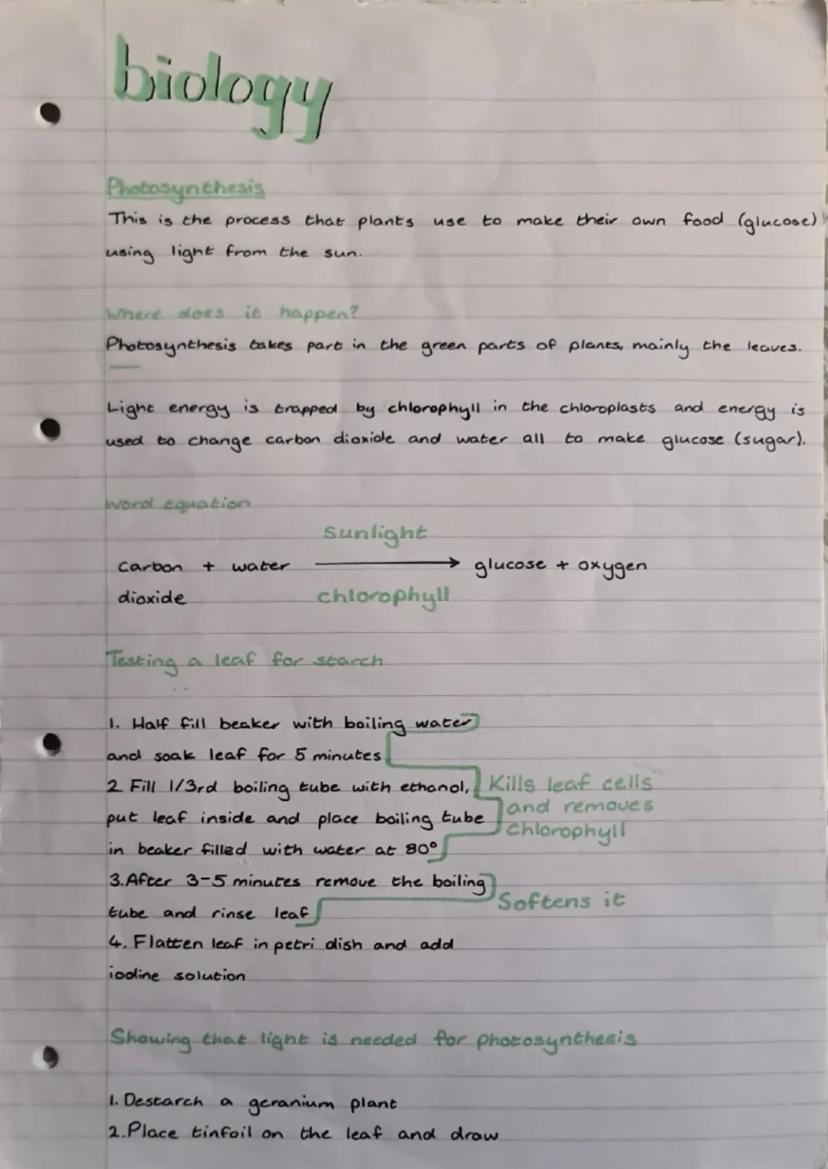 biology
Photosynthesis
This is the process that plants use to make their own food (glucose)
using light from the sun.
Where does it happen?
Photosynthesis takes part in the green parts of plants, mainly the leaves.
Light energy is trapped by chlorophyll in the chloroplasts and energy is
used to change carbon dioxide and water all to make glucose (sugar).
Word equation
Sunlight
carbon + water → glucose + oxygen
dioxide
chlorophyll
Testing a leaf for starch
1. Half fill beaker with boiling water
and soak leaf for 5 minutes
2. Fill 1/3rd boiling tube with ethanol,
put leaf inside and place boiling tube
in beaker filled with water at 80°
Kills leaf cells
and removes
chlorophyll
3. After 3-5 minutes remove the boiling
tube and rinse leaf
Softens it
4. Flatten leaf in petri dish and add
iodine solution
Showing that light is needed for photosynthesis
1. Destarch a geranium plant
2. Place tinfoil on the leaf and draw